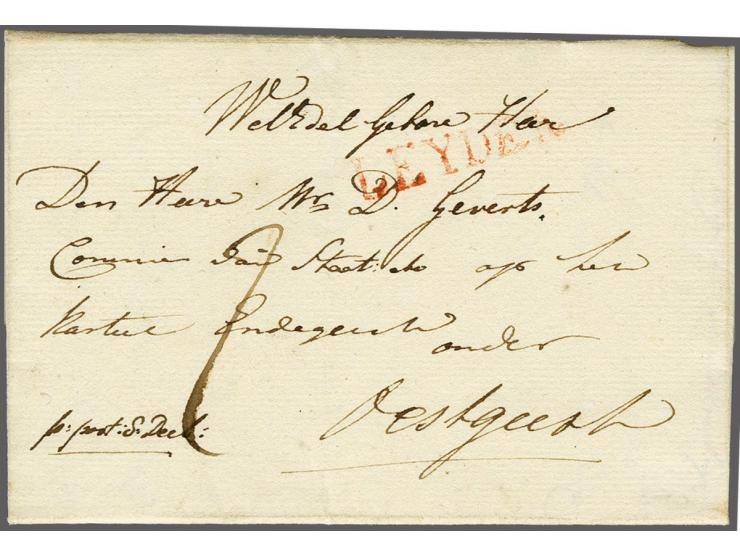 WelEdel Gebore Heer
LEYDEN
Den Heere Mr D. Geverts.
Commies Staat: op het
Kasteel Endegeest
onder
Oestgeest
p: post: d: